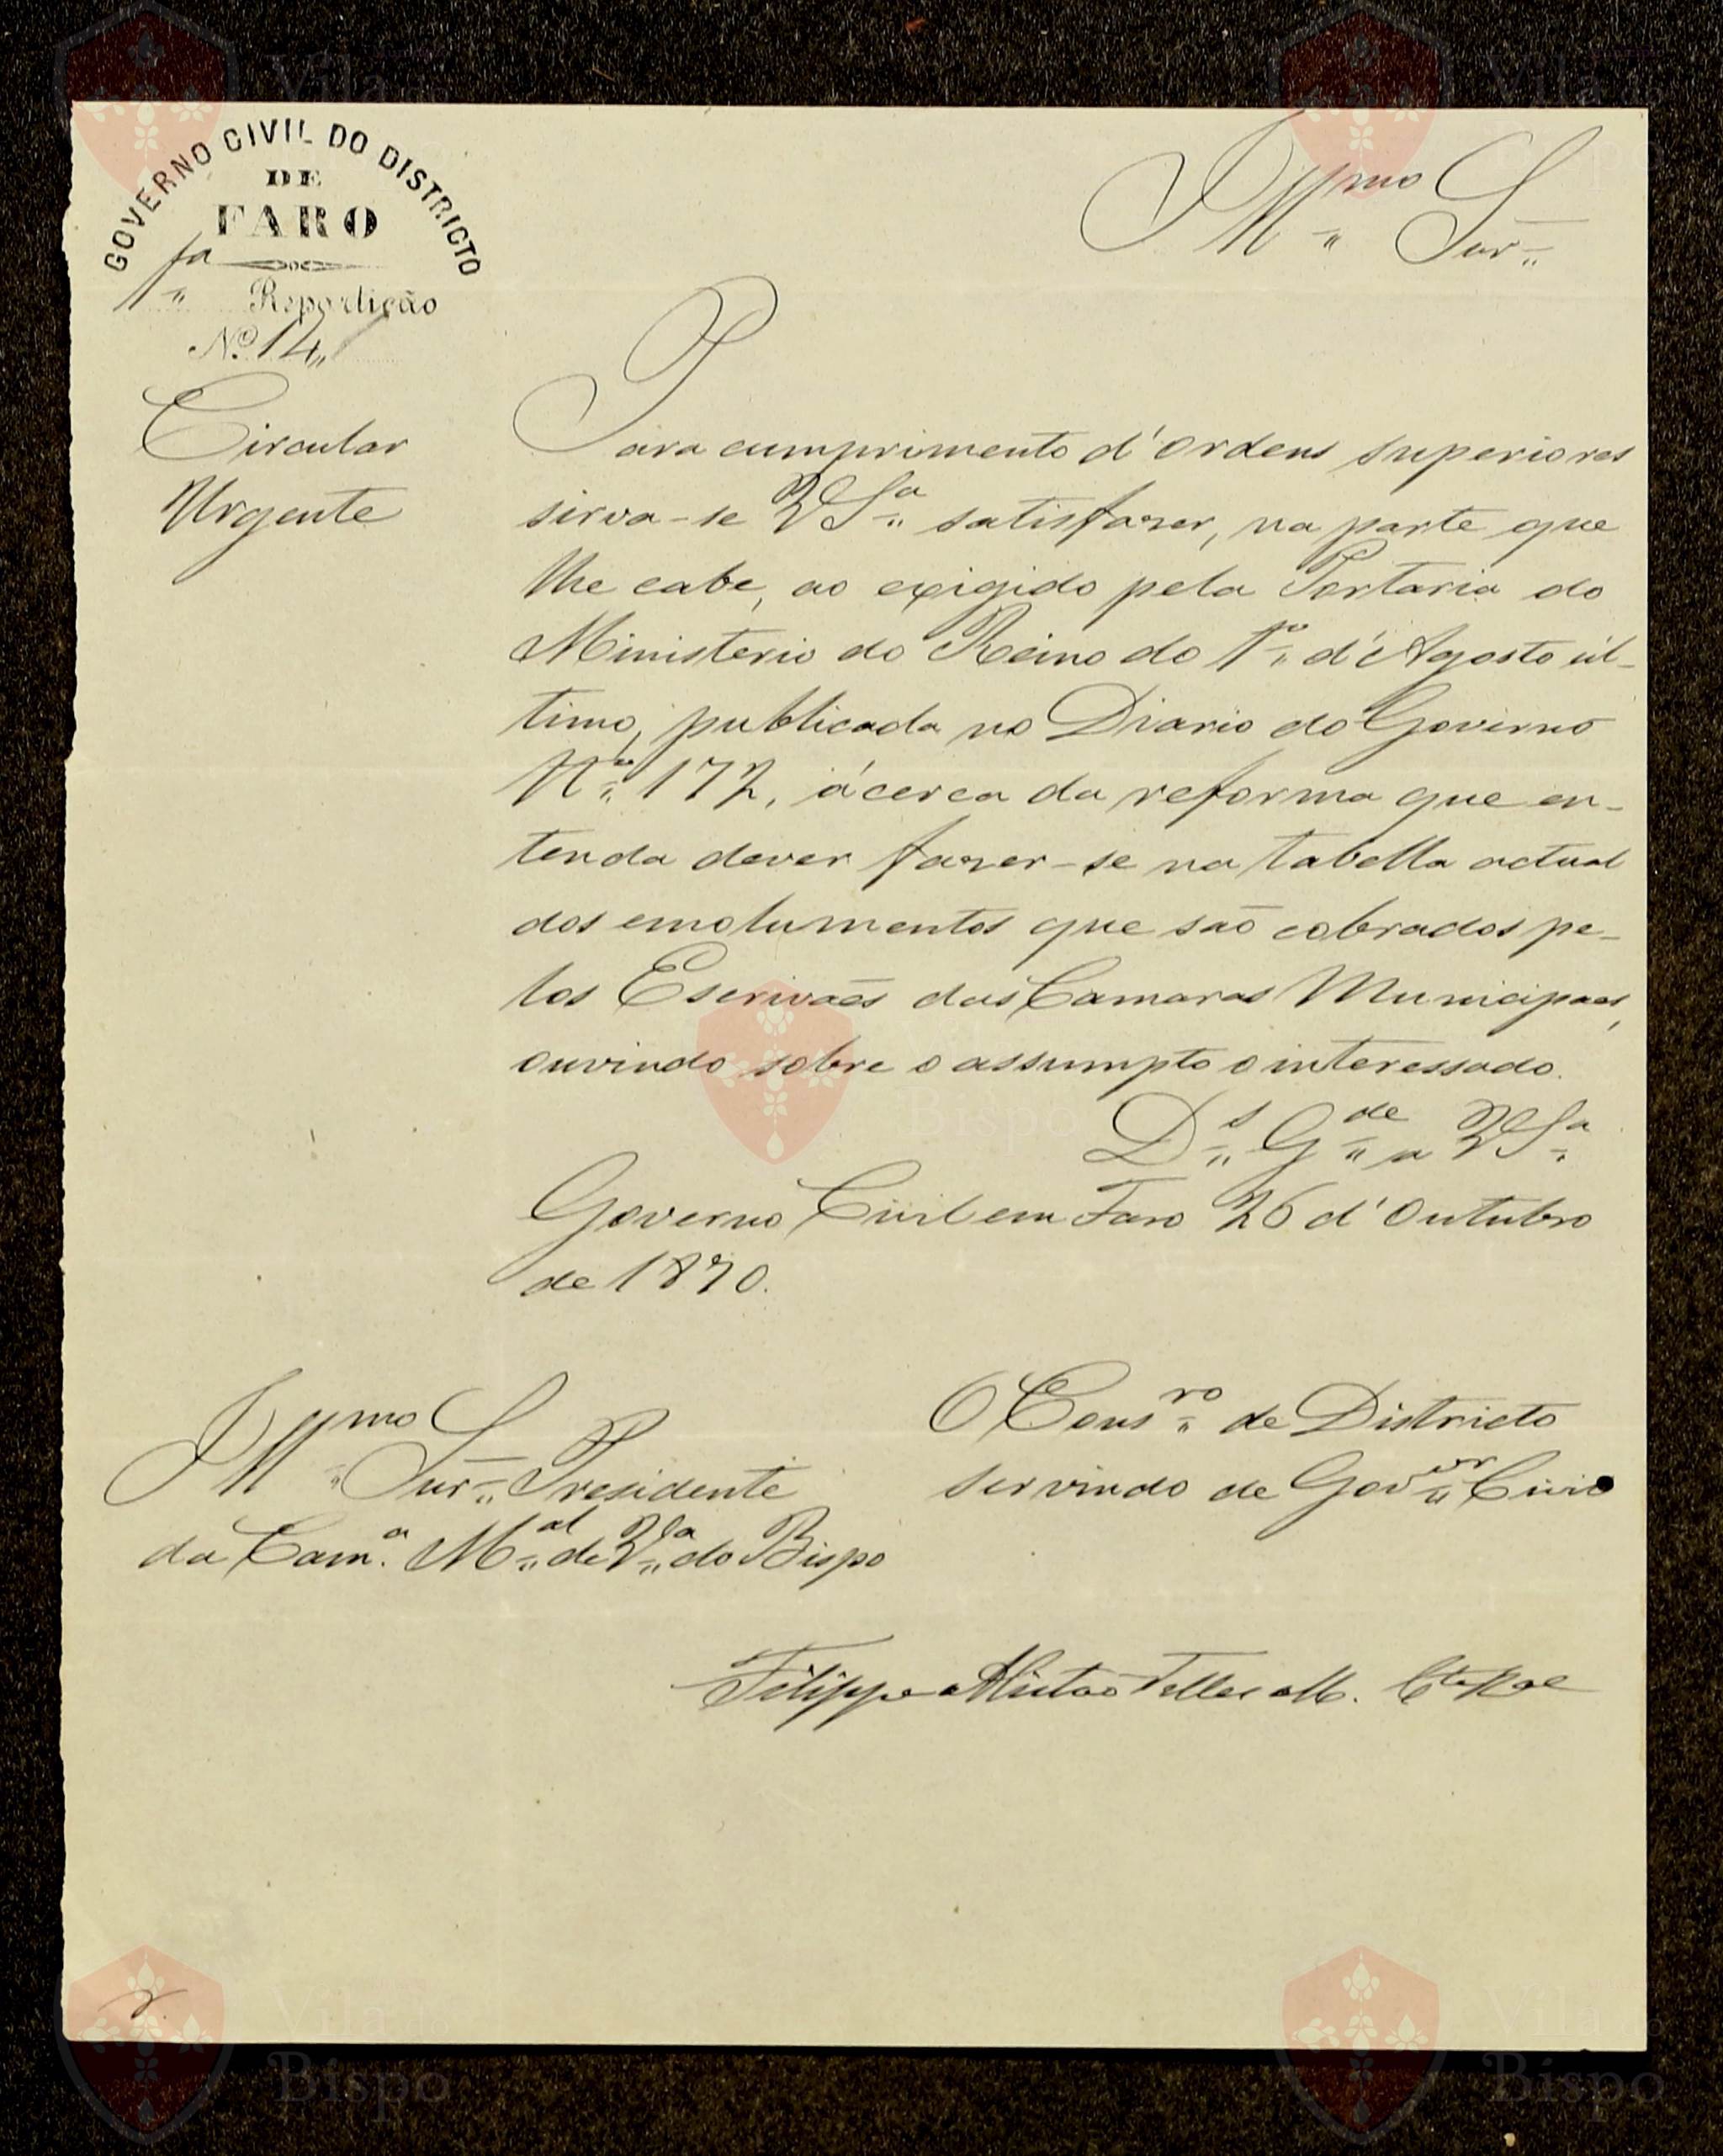 GOVERNO CIVIL DO DISTRICTO
DE
FARO
1ª Repartição
Nº 14
Illmo Snr
Circular
Urgente
Para cumprimento d'ordens superiores
sirva-se VSª satisfazer, na parte que
lhe cabe, ao exigido pela Portaria do
Ministerio do Reino do 1º d'Agosto ul-
timo, publicada no Diario do Governo
Nº 172, ácerca da reforma que en-
tenda dever fazer-se na tabella actual
dos emolumentos que são cobrados pe-
los Escrivães das Camaras Municipaes,
ouvindo sobre o assumpto o interessado.
Ds Gde a VSª
Governo Civil em Faro 26 d'Outubro
de 1870.
Illmo Snr Presidente
da Camª Mal de Vª do Bispo
O Consro de Districto
servindo de Govor Civil
Filippe Telles
Vila do Bispo